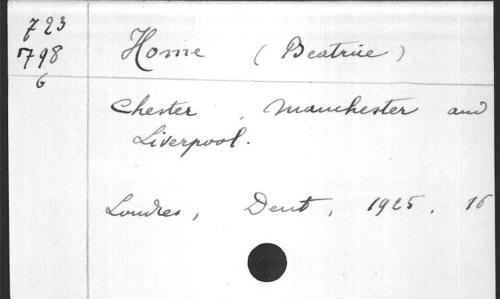 723
798
6
Home (Beatrice)
Chester, Manchester and
Liverpool.
Londres, Dent, 1925. 16